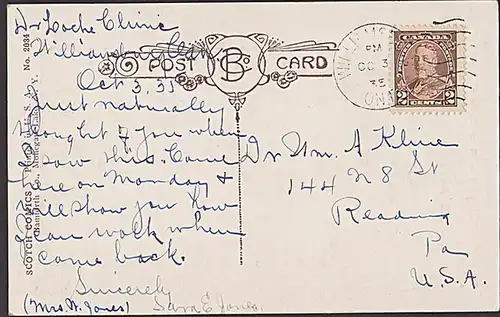 Dr Locke Clinic
Williamsburg Ont.
Oct 3, 35
Just naturally
thought of you when
I saw this. Came
here on Monday &
will show you how
I can walk when
I come back.
Sincerely
(Mrs. W. Jones) Sara E Jones.
No. 2034
SCOTCH COMICS
Bamforth Co., N. Y.
POST CARD
B Co
WILLIAMSBURG
PM
OC 3
35
ONT
CANADA
2 CENTS 2
Dr Wm. A Kline
144 N 8 St
Reading
Pa
U.S.A.